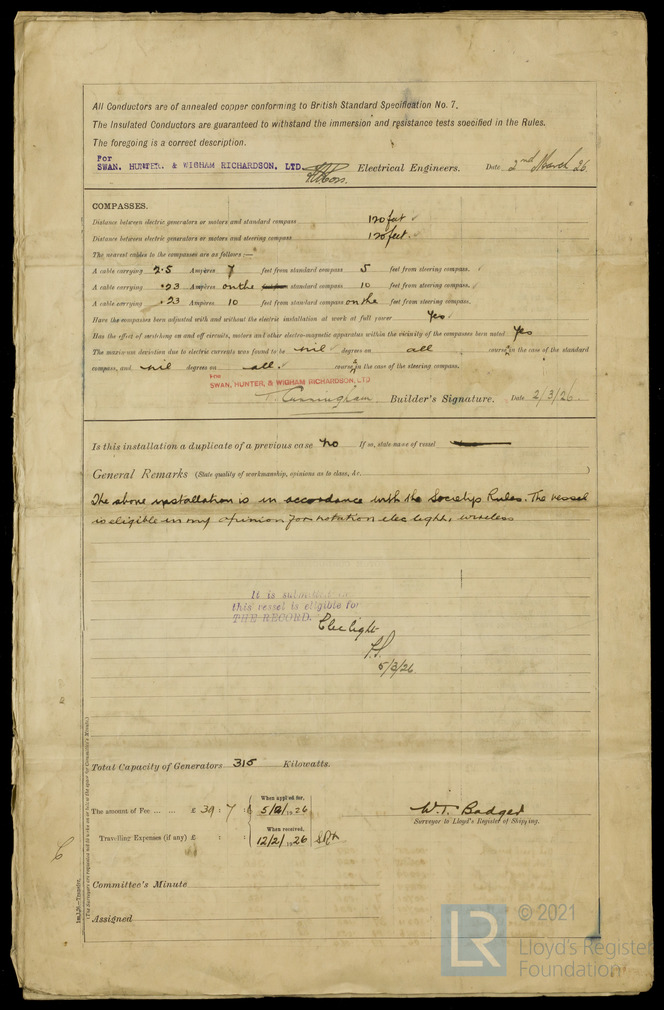 All Conductors are of annealed copper conforming to British Standard Specification No. 7.
The Insulated Conductors are guaranteed to withstand the immersion and resistance tests specified in the Rules.
The foregoing is a correct description.
For
SWAN, HUNTER, & WIGHAM RICHARDSON, LTD. Electrical Engineers. Date 2nd March 26
COMPASSES.
Distance between electric generators or motors and standard compass 120 feet
Distance between electric generators or motors and steering compass 120 feet.
The nearest cables to the compasses are as follows :—
A cable carrying 2.5 Ampères 7 feet from standard compass 5 feet from steering compass.
A cable carrying .23 Ampères on the standard compass 10 feet from steering compass.
A cable carrying .23 Ampères 10 feet from standard compass on the feet from steering compass.
Have the compasses been adjusted with and without the electric installation at work at full power Yes
Has the effect of switching on and off circuits, motors and other electro-magnetic apparatus within the vicinity of the compasses been noted Yes
The maximum deviation due to electric currents was found to be nil degrees on all courses in the case of the standard
compass, and nil degrees on all courses in the case of the steering compass.
For
SWAN, HUNTER, & WIGHAM RICHARDSON, LTD
Cunningham Builder's Signature. Date 2/3/26.
Is this installation a duplicate of a previous case no If so, state name of vessel
General Remarks (State quality of workmanship, opinions as to class, &c.)
The above installation is in accordance with the Society's Rules. The vessel
is eligible in my opinion for notation elec light, wireless
It is submitted
this vessel is eligible for
THE RECORD. Elec light
5/3/26
Total Capacity of Generators 315 Kilowatts.
The amount of Fee ... ... £ 39 : 7 : 6 When applied for, 5/2/1926
Travelling Expenses (if any) £ : : When received, 12/2/1926
W.T. Badger
Surveyor to Lloyd's Register of Shipping.
Committee's Minute
Assigned
LR © 2021
Lloyd's Register
Foundation